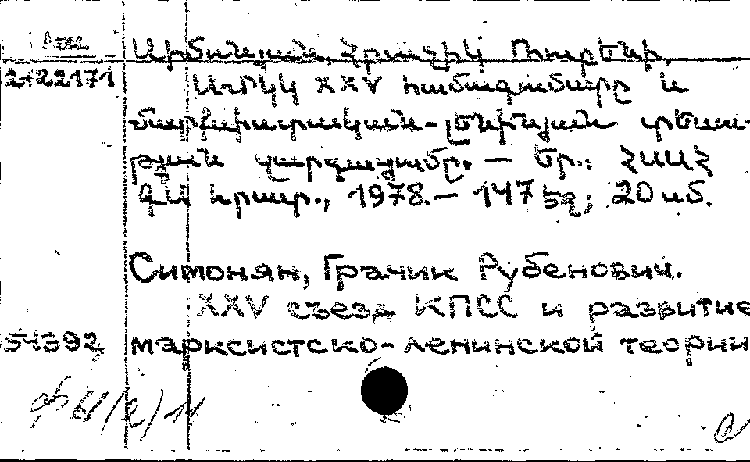 Սիմոնյան, Հրաչիկ Ռուբենի.
2122171
ՍՄԿԿ XXV համագումարը և
մարքսիստական-լենինյան տեսու-
թյան զարգացումը. — Եր.: ՀՍՍՀ
ԳԱ հրատ., 1978. — 147 էջ; 20 սմ.
Симонян, Грачик Рубенович.
XXV съезд КПСС и развитие
54392 марксистско-ленинской теории